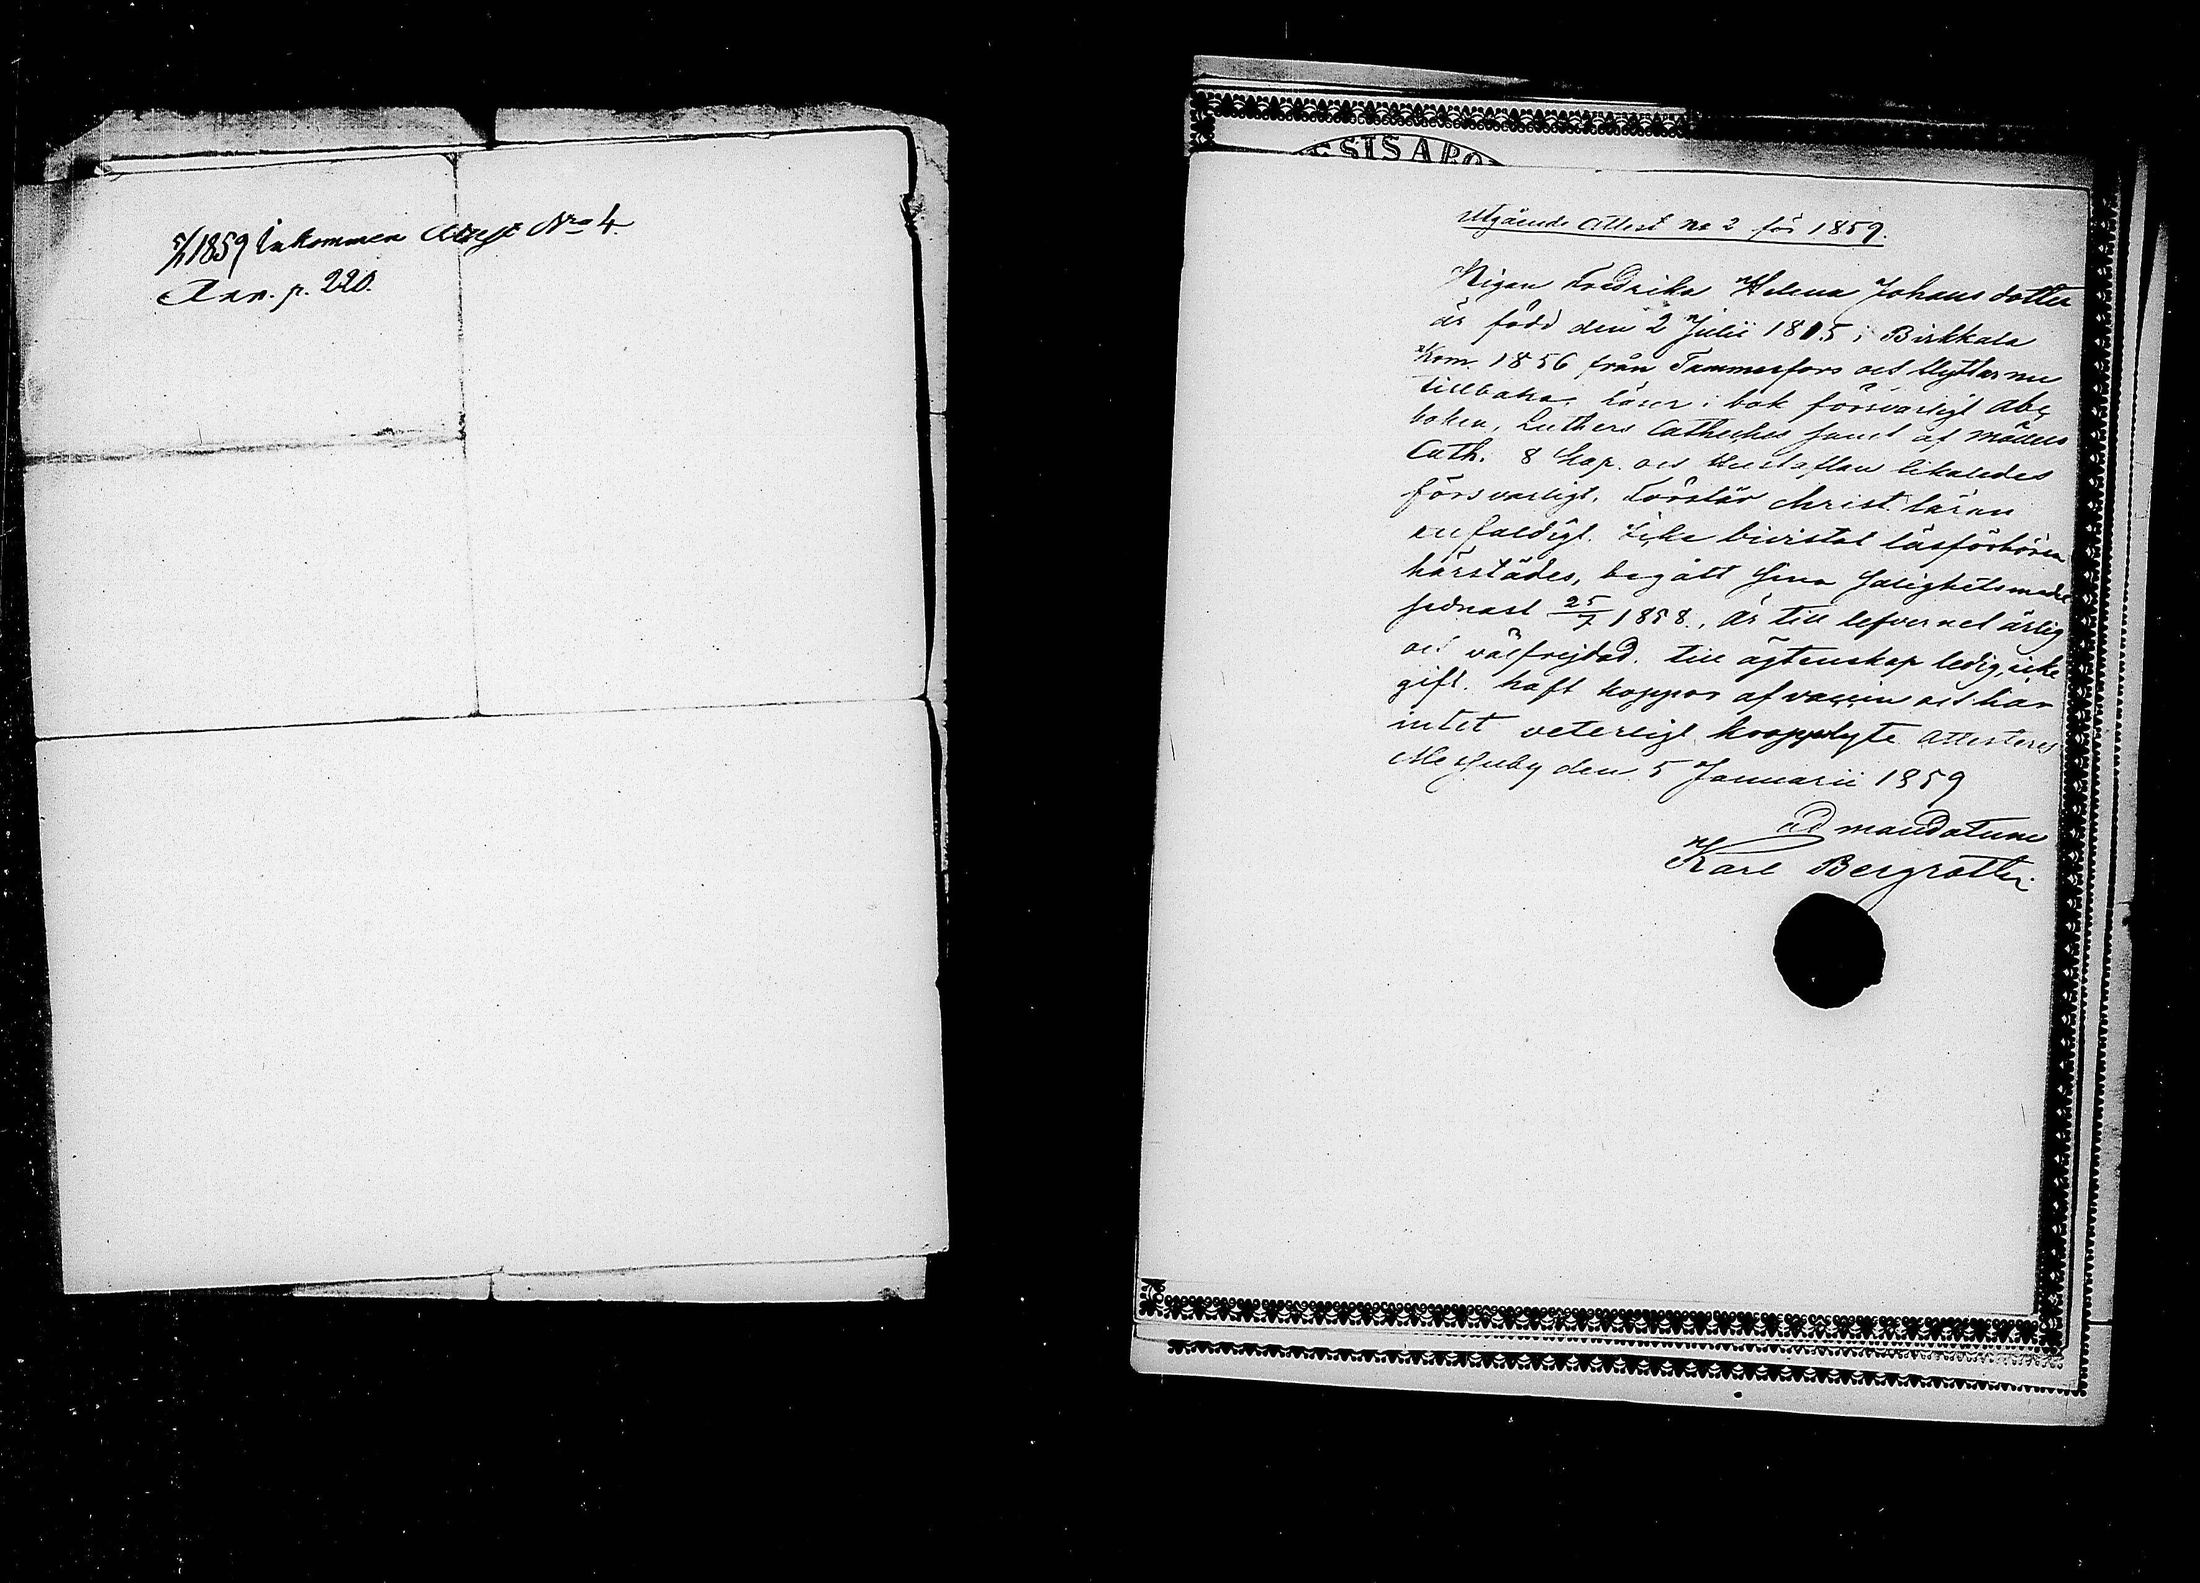 5/1 1859 Inkommen Attest No 4.
Ann. p. 220.
SIS ABO
Utgående Attest No 2 för 1859.
Pigan Fredrika Helena Johansdotter
är född den 2 Julii 1815 i Birkkala
Kom. 1856 från Tammerfors och flyttar nu
tillbaka, läser i bok försvarligt Abc
boken, Luthers Catheches samt af möllers
Cath. 8 kap. och Hustaflan likaledes
försvarligt. Förstår christ. läran
enfaldigt. Icke bivistat läsförhören
härstädes, begått sina salighetsmedel
sednast 25/7 1858., Är till lefvernet ärlig
och välfrejdad. till ägtenskap ledig, icke
gift. haft koppor af vaccin och har
intet veterligt kropplyte attesteres
Messuby den 5 Januarii 1859
ad mandatum
Karl Bergroth